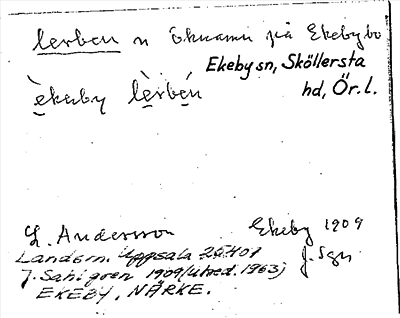 lerben n öknamn på Ekebybo
Ekeby sn, Sköllersta
hd, Ör. l.
èkeby lèrbén
L. Andersson Ekeby 1909
Landsm. Uppsala 25:401 J. Sgn
J. Sahlgren 1909 (utred. 1963)
EKEBY, NÄRKE.